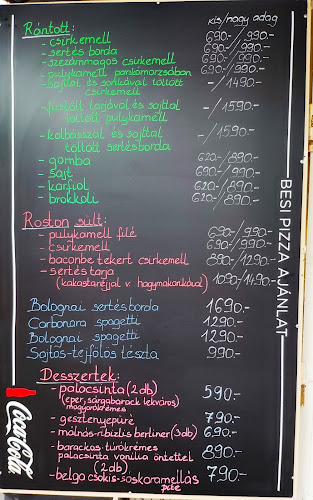 Rántott: kis/nagy adag
- csirkemell 690.-/990.-
- sertés borda 690.-/990.-
- szezámmagos csirkemell 690.-/990.-
- pulykamell pankómorzsában 690.-/990.-
- sajttal és sonkával töltött -/1490.-
csirkemell
- füstölt tarjával és sajttal -/1590.-
töltött pulykamell
- kolbásszal és sajttal -/1590.-
töltött sertésborda
- gomba 620.-/890.-
- sajt 620.-/890.-
- karfiol 620.-/890.-
- brokkoli 620.-/890.-
Roston sült:
- pulykamell filé 690.-/990.-
- csirkemell 690.-/990.-
- baconbe tekert csirkemell 890.-/1290.-
- sertés tarja 1090.-/1490.-
(kakastaréjjal v. hagymakarikával)
Bolognai sertésborda 1690.-
Carbonara spagetti 1290.-
Bolognai spagetti 1290.-
Sajtos-tejfölös tészta 990.-
Desszertek:
- palacsinta (2 db) 590.-
(eper, sárgabarack lekváros)
mogyorókrémes
- gesztenyepüré 790.-
- málnás-ribizlis berliner (3db) 690.-
- barackos túrókrémes
palacsinta vanília öntettel 890.-
(2 db)
- belga csokis-sóskaramellás 790.-
pite
BESI PIZZA AJÁNLAT
Coca-Cola